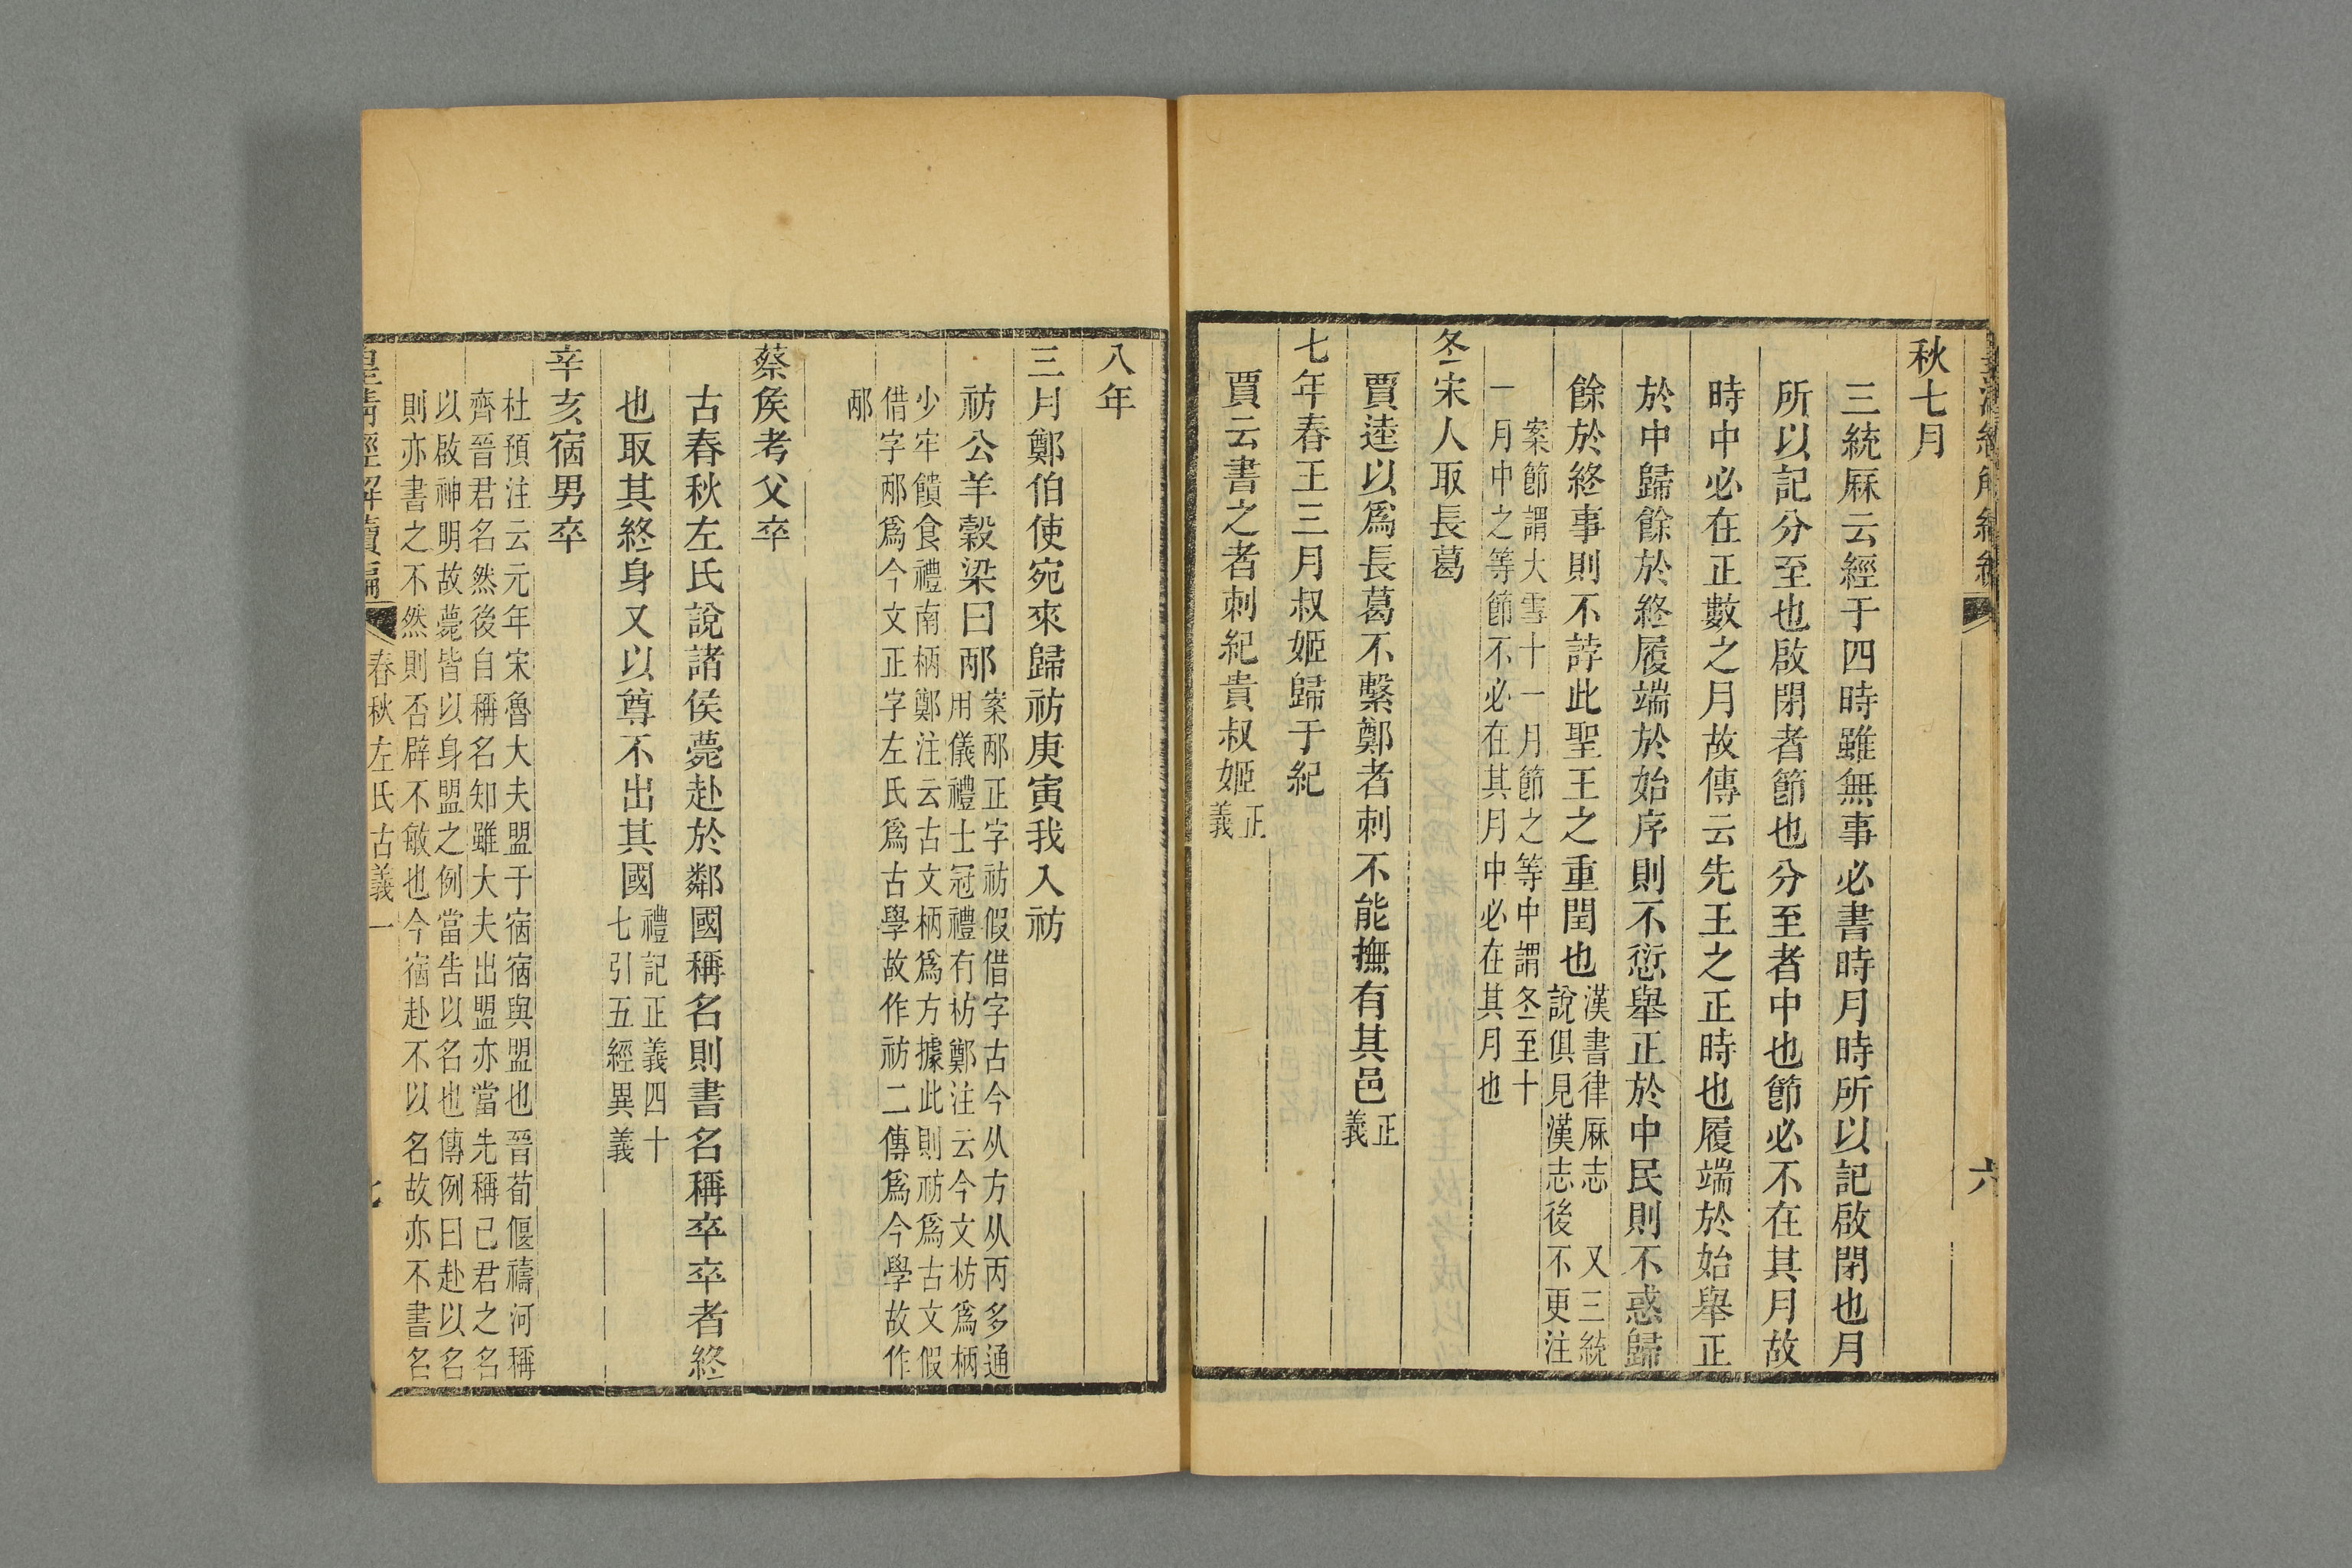 秋七月
三統厤云經于四時雖無事必書時月時所以記啟閉也月
所以記分至也啟閉者節也分至者中也節必不在其月故
時中必在正數之月故傳云先王之正時也履端於始舉正
於中歸餘於終履端於始序則不愆舉正於中民則不惑歸
餘於終事則不誖此聖王之重閏也
漢書律厤志 又三統
說俱見漢志後不更注
案節謂大雪十一月節之等中謂冬至十
一月中之等節不必在其月中必在其月也
冬宋人取長葛
賈逵以爲長葛不繫鄭者刺不能撫有其邑
正
義
七年春王三月叔姬歸于紀
賈云書之者刺紀貴叔姬
正
義
八年
三月鄭伯使宛來歸祊庚寅我入祊
祊公羊穀梁曰邴
案邴正字祊假借字古今从方从丙多通
用儀禮士冠禮有枋鄭注云今文枋爲柄
少牢饋食禮南柄鄭注云古文柄爲方據此則祊爲古文假
借字邴爲今文正字左氏爲古學故作祊二傳爲今學故作
邴
蔡矦考父卒
古春秋左氏說諸侯薨赴於鄰國稱名則書名稱卒卒者終
也取其終身又以尊不出其國
禮記正義四十
七引五經異義
辛亥宿男卒
杜預注云元年宋魯大夫盟于宿宿與盟也晉荀偃禱河稱
齊晉君名然後自稱名知雖大夫出盟亦當先稱己君之名
以啟神明故薨皆以身盟之例當告以名也傳例曰赴以名
則亦書之不然則否辟不敏也今宿赴不以名故亦不書名
皇清經解續編
春秋左氏古義一